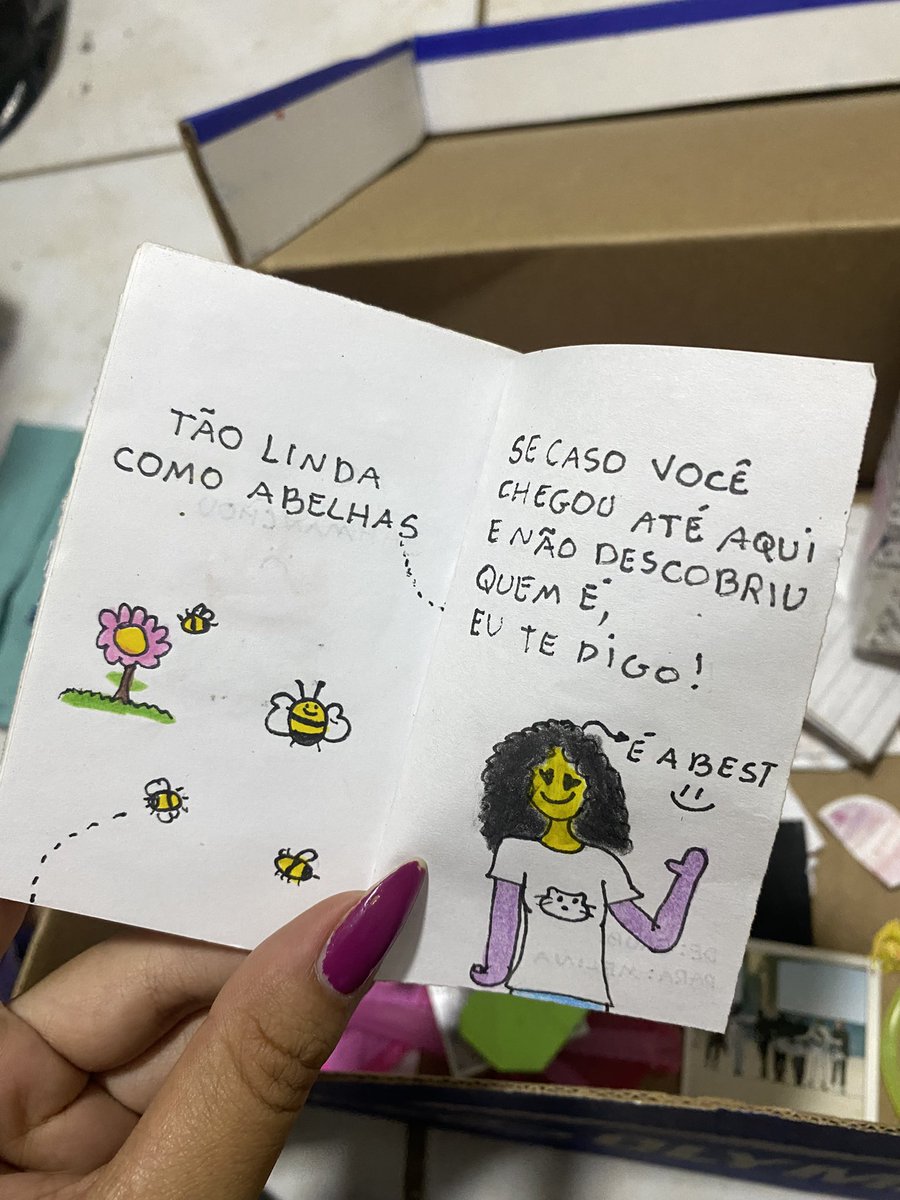 TÃO LINDA
COMO ABELHAS
SE CASO VOCÊ
CHEGOU ATÉ AQUI
E NÃO DESCOBRIU
QUEM É,
EU TE DIGO!
É A BEST